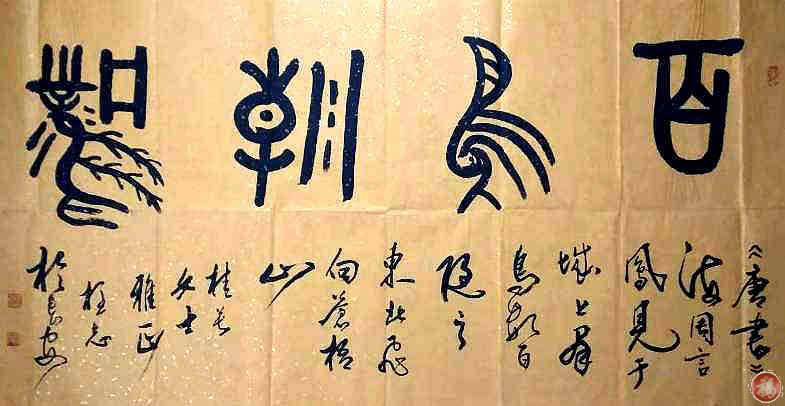 百鳥朝鳳
《唐書》
海周言
鳳見于
城上群
鳥數百
随之
東北飛
向蒼梧
山
桂
女士
雅正
於長安
福